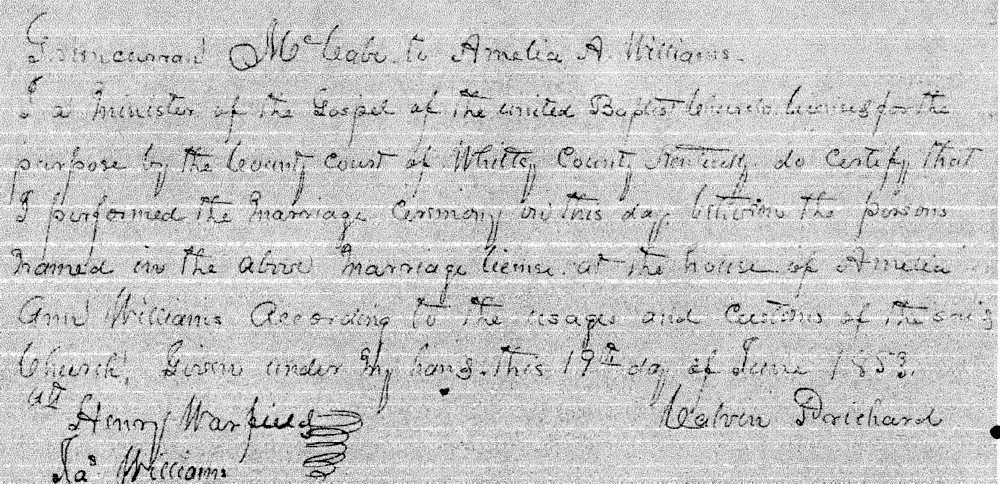 McCabe to Amelia A. Williams
I a minister of the Gospel of the united Baptist Church licensed for the
purpose by the County Court of Whitley County Kentucky do certify that
I performed the marriage ceremony on this day between the persons
named in the above marriage license at the house of Amelia
Ann Williams According to the usages and Customs of the said
Church, Given under my hand this 19th day of June 1853.
att Henry Warfield Calvin Prichard
Jas Williams